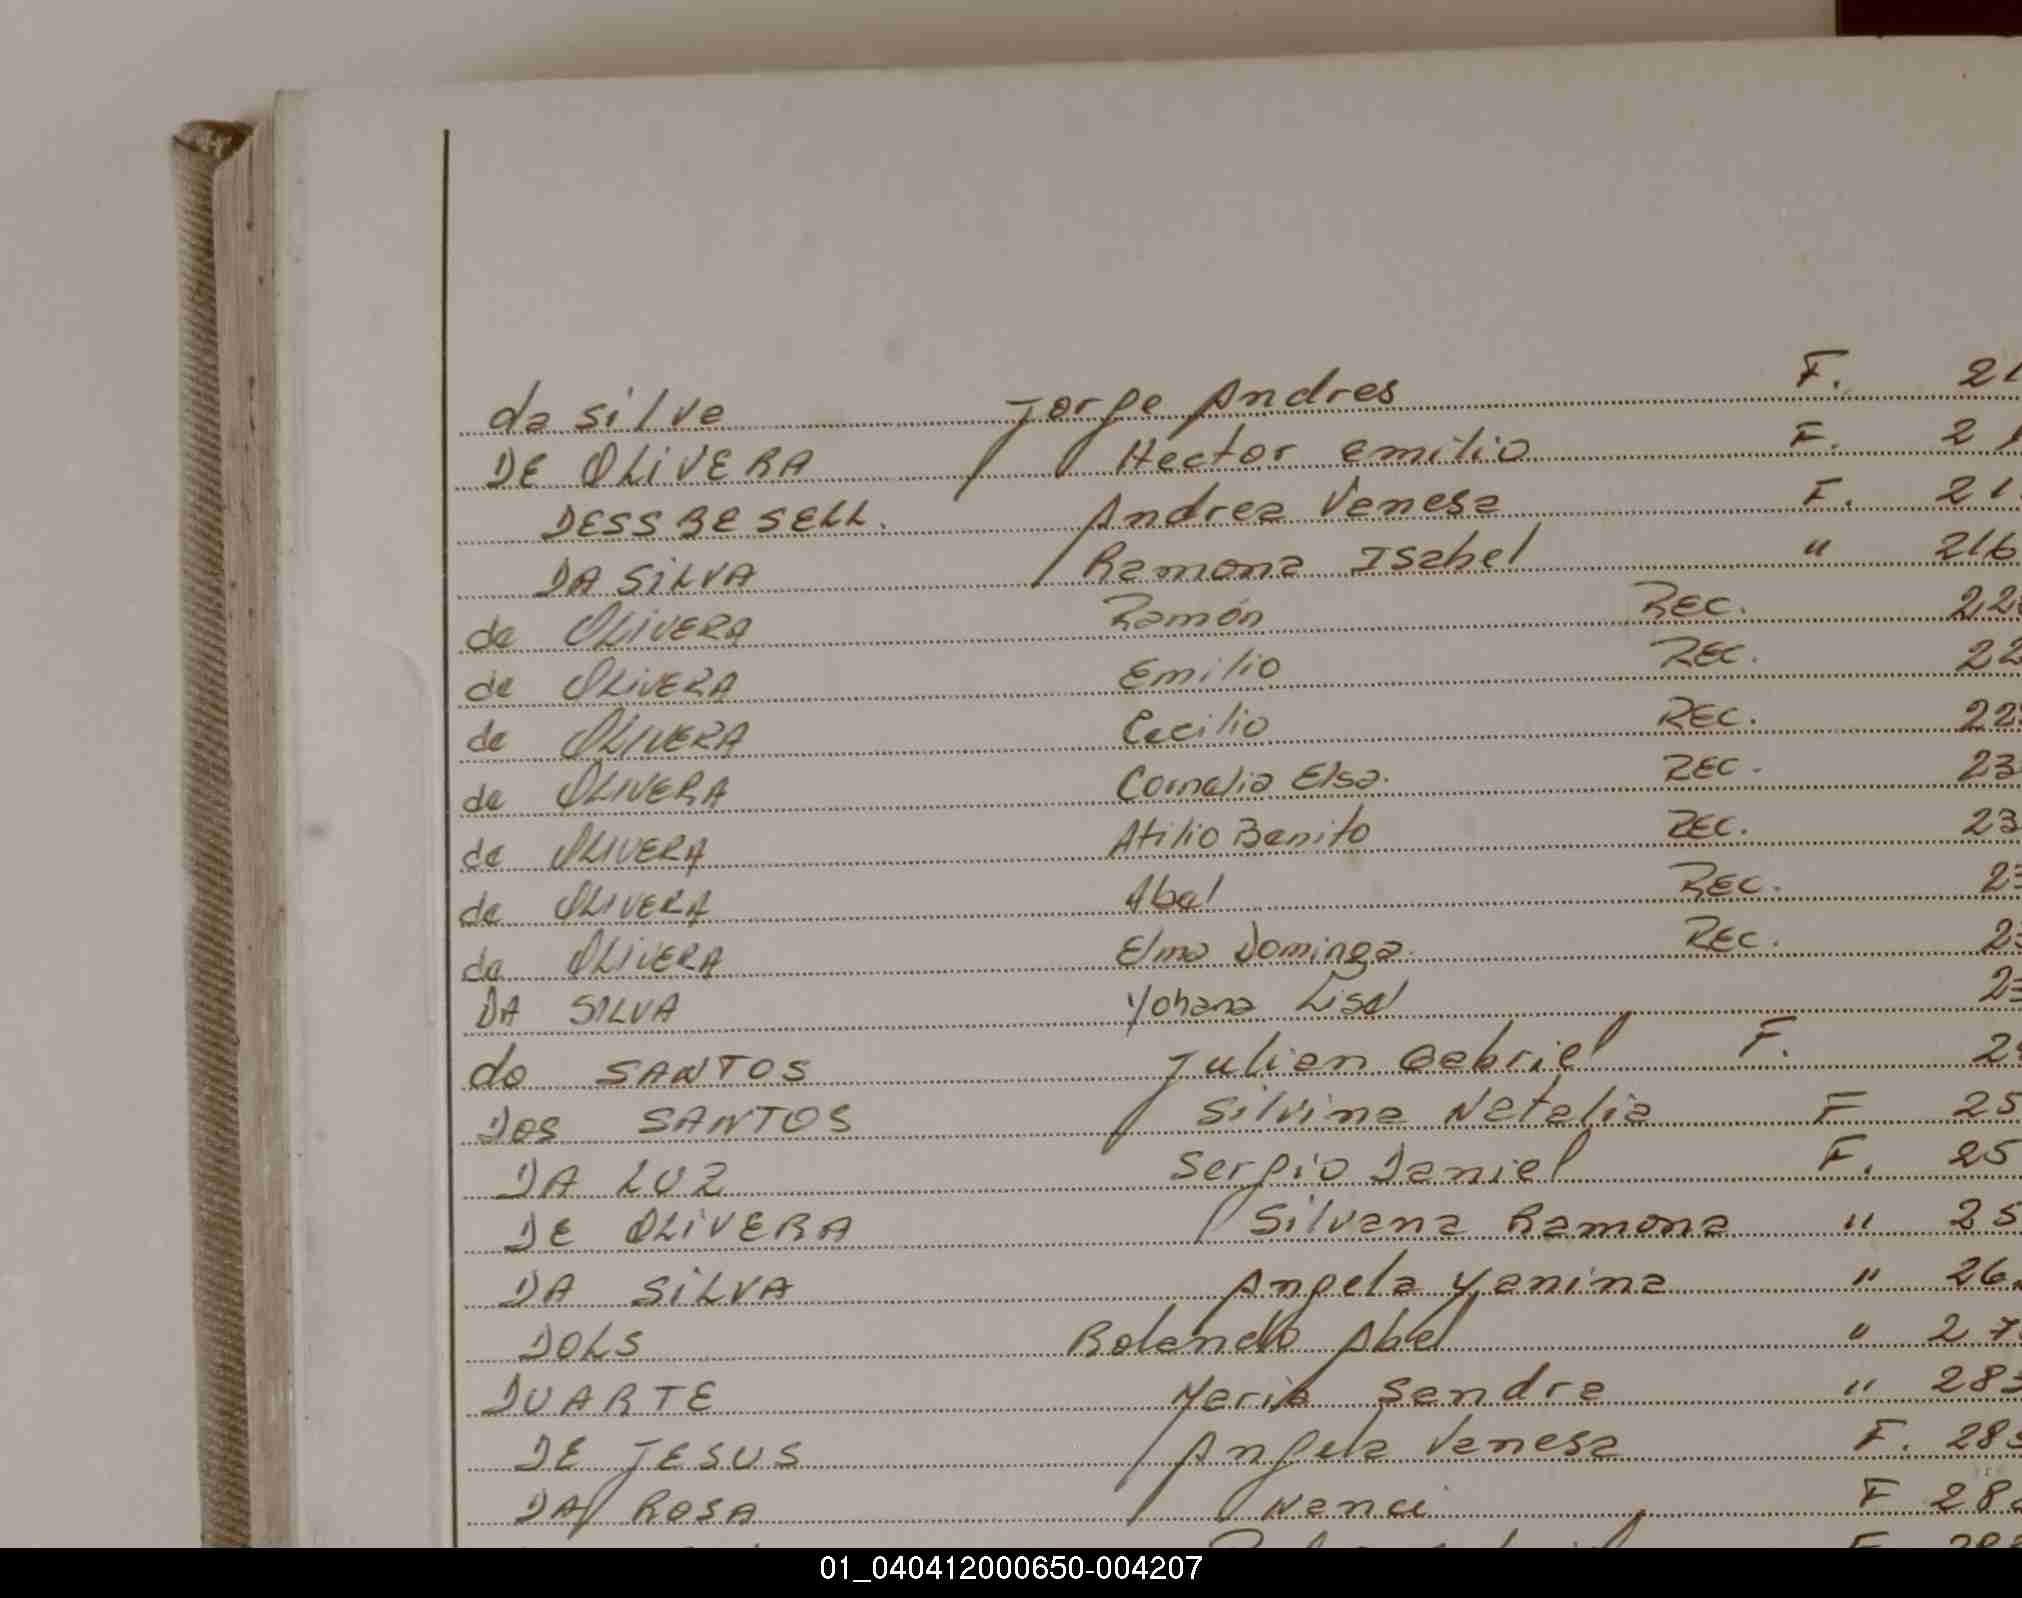 da silva Jorge Andres F. 21
DE OLIVERA Hector emilio F. 21
DESSBESELL. Andrea Vanesa F. 21
DA SILVA Ramona Isabel " 216
de OLIVERA Ramón REC. 22
de OLIVERA Emilio REC. 22
de OLIVERA Cecilio REC. 22
de OLIVERA Cornelia Elsa. REC. 23
de OLIVERA Atilio Benito REC. 23
de OLIVERA Abel REC. 23
de OLIVERA Elma Dominga. REC. 23
DA SILVA Yohana Lisel 23
do SANTOS Julian Gabriel F. 2
DOS SANTOS Silvina Natalia F 25
DA LUZ Sergio Daniel F. 25
DE OLIVERA Silvana Ramona " 25
DA SILVA Angela Yanina " 26
DOLS Rolando Abel " 27
DUARTE Maria Sandra " 28
DE JESUS Angela Vanesa F. 28
DA ROSA Nanci F 28
01_040412000650-004207